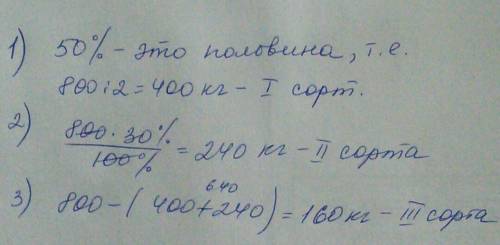 1) 50% - это половина, т.е.
800:2=400 кг - I сорт.
2) 800 · 30% / 100% = 240 кг - II сорта
640
3) 800 - (400+240) = 160 кг - III сорта